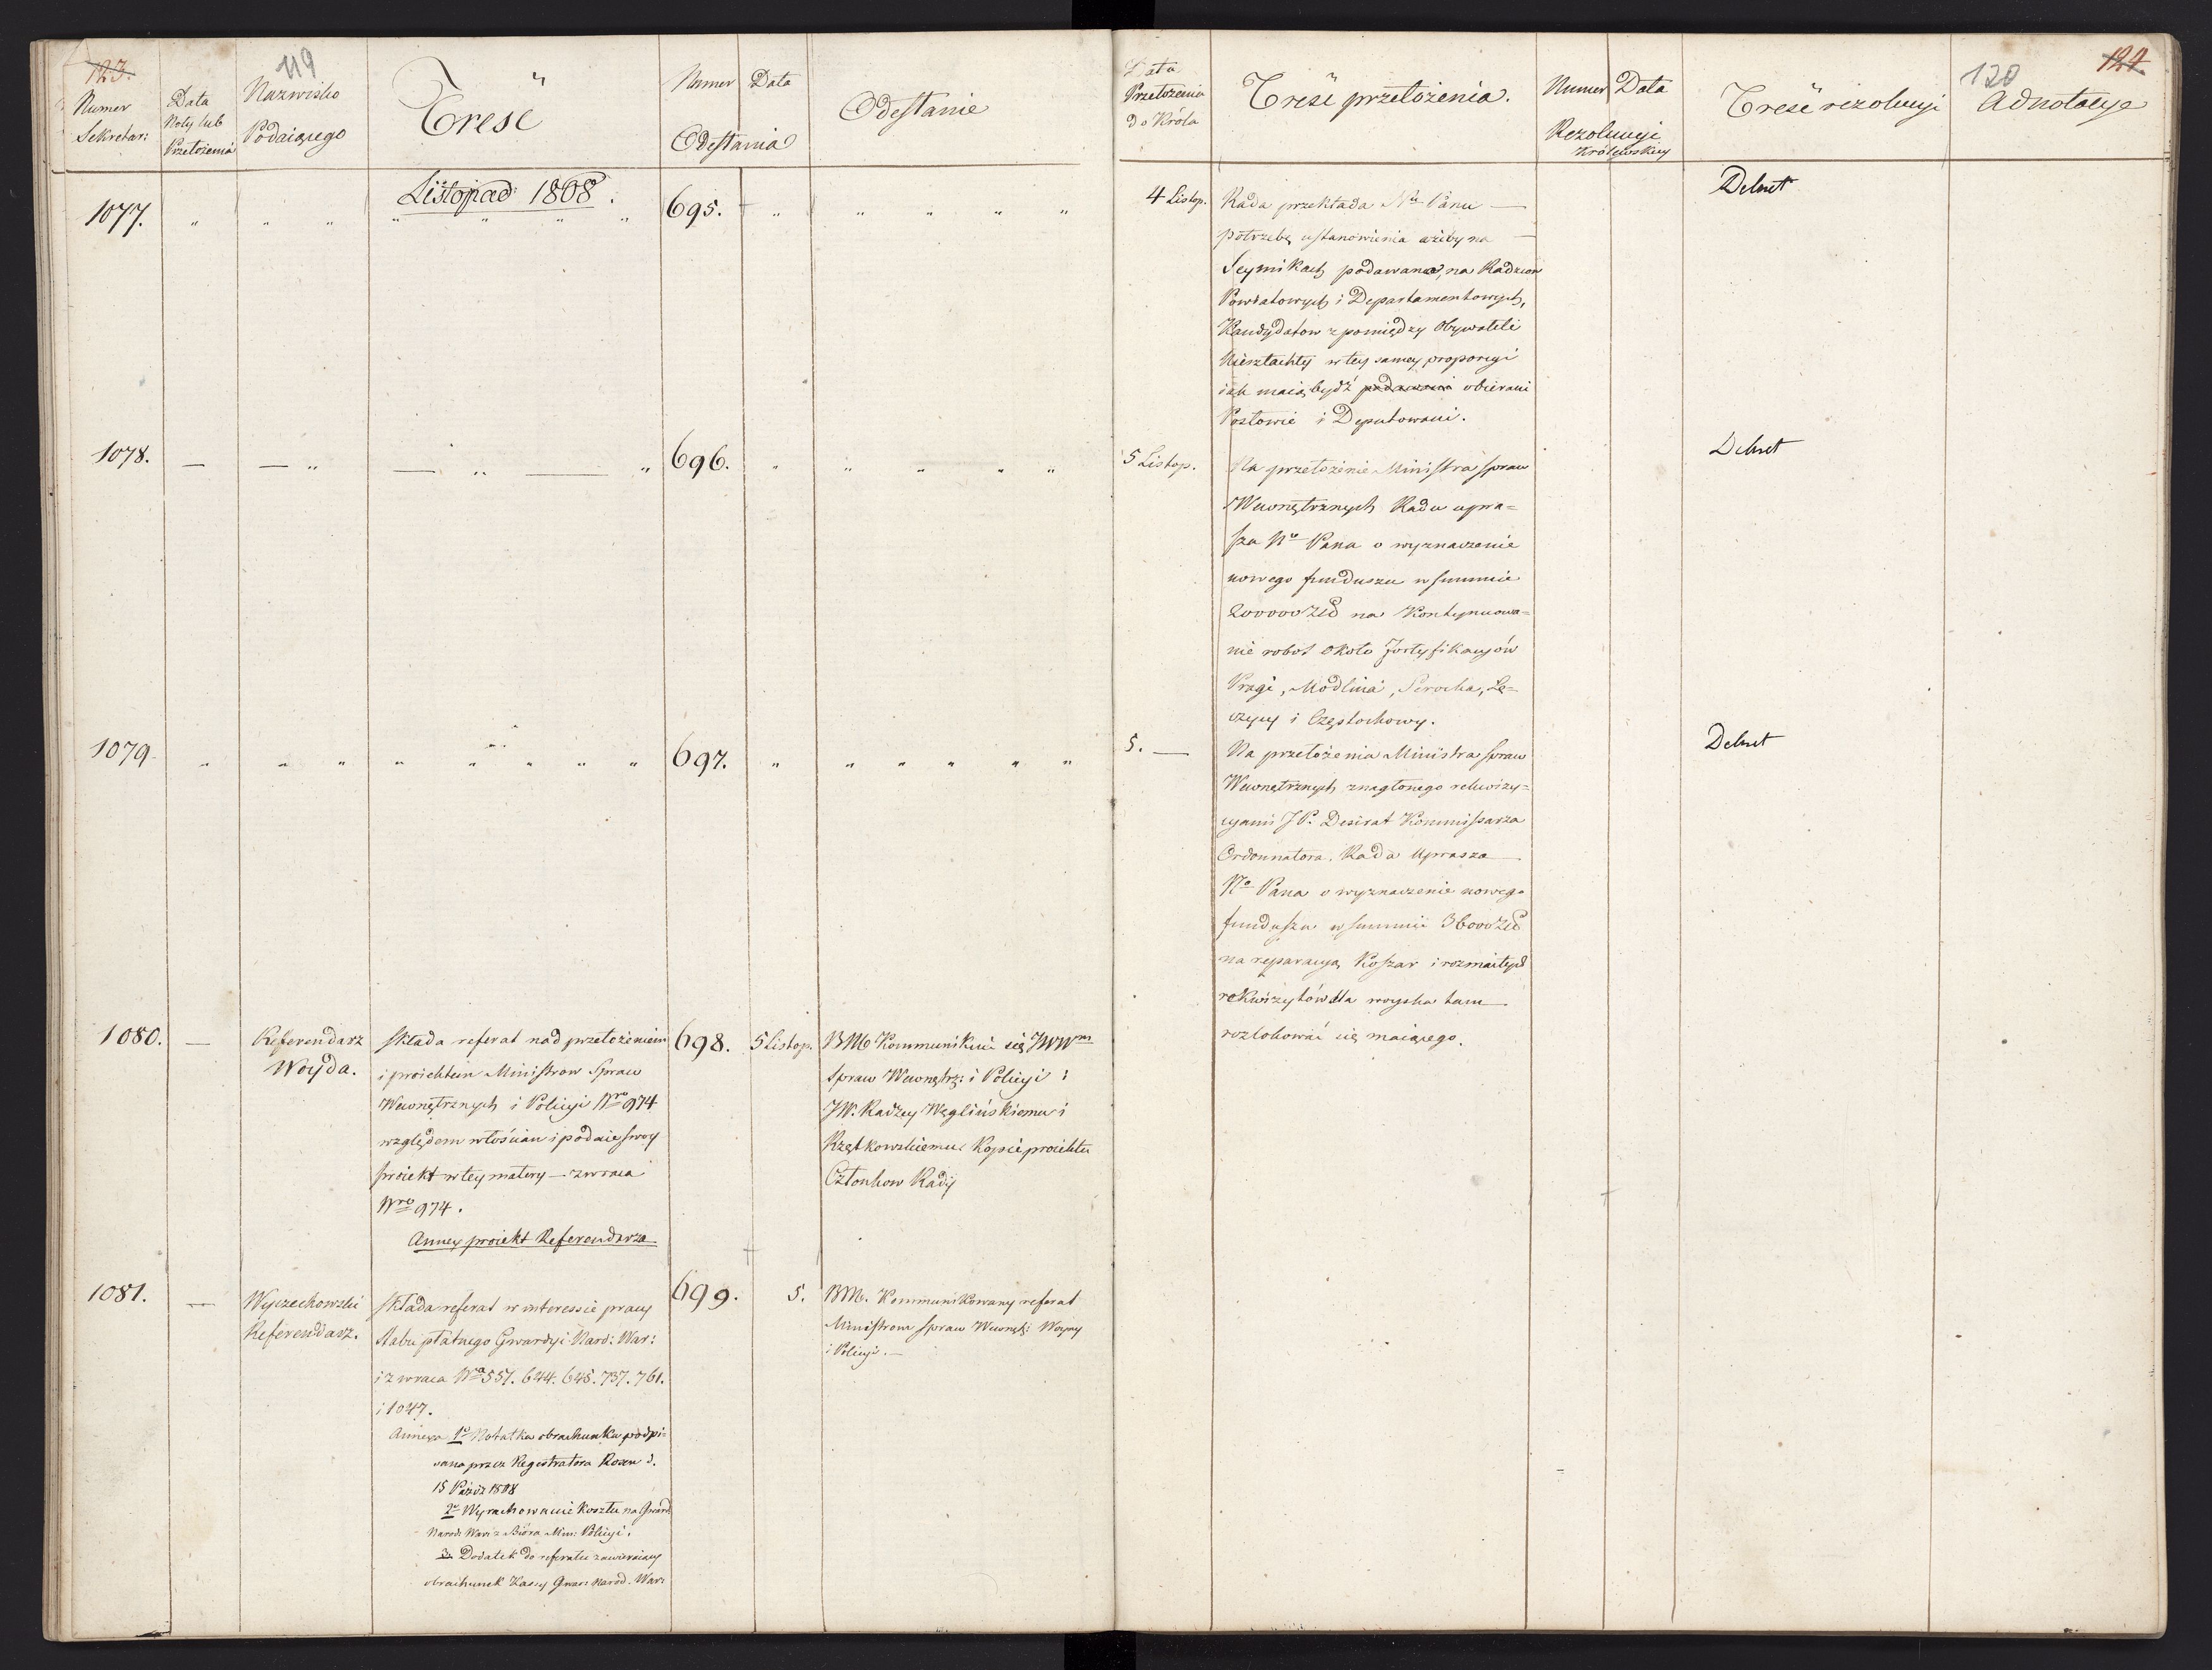 123.
119
Numer
Sekretar:
Data
Noty lub
Przełożenia
Nazwisko
Podaiącego
Treść
Numer
Data
Odesłania
Odesłanie
Listopad 1808.
1077. " " " " " " " 695. " " " " "
1078. — — " — " — " 696. " " " " "
1079. " " " " " " " " 697. " " " " " "
1080. —
Referendarz
Woyda.
składa referat nad przełożeniem
i proiektem Ministrow Spraw
Wewnętrznych i Policyi Nro 974
względem włościan i podaie swoy
proiekt w tey matery — zwraca
Nro 974.
Annex proiekt Referendarza
698.
5 Listop.
BM Kommunikuie się JWWm
Spraw Wewnętrz: i Policyi i
JW. Radzcy Węglińskiemu i
Rzętkowskiemu Kopie proiektu
Członkow Rady
1081. —
Wyczechowski
Referendarz.
składa referat w interessie pracy
Sztabu płatnego Gwardyi Naro: War:
i zwraca Nra 557. 644. 648. 737. 761.
i 1047.
Annexa 1o Notatka obrachunku podpi=
sana przez Registratora Rosen d.
15 Paźdz 1808
2o Wyrachowanie kosztu na Gward:
Narod: War: z Biora Min: Policyi.
3o Dodatek do referatu zawieraiący
obrachunek Kassy Gwar: Narod. War:
699.
5.
BM. Kommunikowany referat
Ministrom Spraw Wewnęt: Woyny
i Policyi. —
120
124.
Data
Przełożenia
do Króla
Treść przełożenia.
Numer
Data
Rezolucyi
Królewskiey
Treść rezolucyi
Adnotacye
4 Listop.
Rada przekłada Nu Panu —
potrzebę ustanowienia ażeby na —
Seymikach podawano, na Radzców
Powiatowych i Departamentowych,
Kandydatow z pomiędzy Obywateli
Nieszlachty w tey samey proporcyi
iak maią bydź podawani obierani
Posłowie i Deputowani.
Dekret
5 Listop.
Na przełożenie Ministra Spraw
Wewnętrznych Rada upra=
sza No Pana o wyznaczenie
nowego funduszu w summie
200000 Złł na Kontynuowa=
nie robot około Fortyfikacyów
Pragi, Modlina, Serocka, Łę=
czycy i Częstochowy.
Dekret
5. —
Na przełożenia Ministra Spraw
Wewnętrznych znaglonego rekwizy=
cyami JP. Desirat Kommissarza
Ordonnatora. Rada Uprasza —
No Pana o wyznaczenie nowego
funduszu w summie 36000 Złł
na reparacyą Koszar i rozmaitych
rekwizytów dla woyska tam —
rozlokować się maiącego.
Dekret